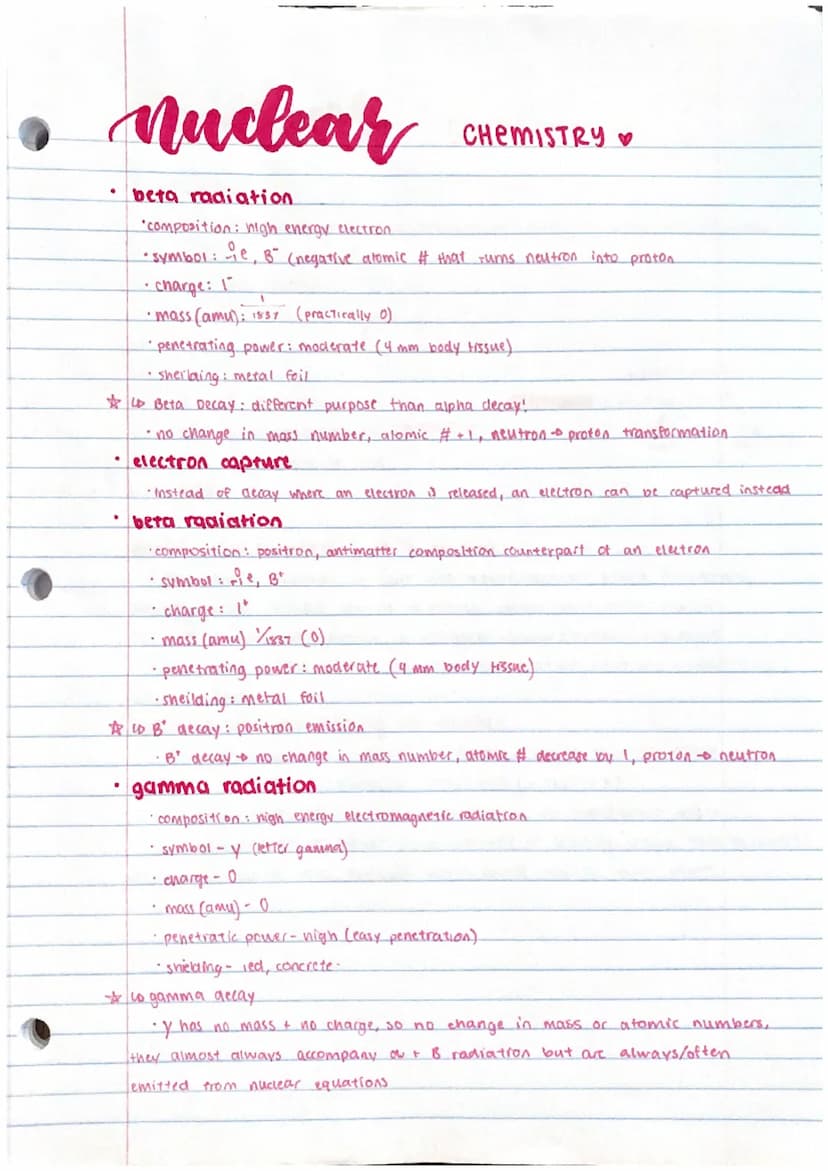 nuclear CHEMISTRY ♥
• beta radiation
• composition: high energy electron
• symbol: ⁰₋₁e, B⁻ (negative atomic # that turns neutron into proton
• charge: 1⁻
• mass (amu): 1/1837 (practically 0)
• penetrating power: moderate (4 mm body tissue)
• sheilding: metal foil
☆ ↳ Beta Decay: different purpose than alpha decay!
• no change in mass number, atomic # +1, neutron → proton transformation
• electron capture
• Instead of decay where an electron is released, an electron can be captured instead
• beta radiation
• composition: positron, antimatter composition counterpart of an electron
• symbol: e, B⁺
• charge: 1⁺
• mass (amu) 1/1837 (0)
• penetrating power: moderate (4 mm body tissue)
• sheilding: metal foil
☆ ↳ B⁺ decay: positron emission
• B⁺ decay → no change in mass number, atomic # decrease by 1, proton → neutron
• gamma radiation
• composition: high energy electromagnetic radiation
• symbol - γ (letter gamma)
• charge - 0
• mass (amu) - 0
• penetratic power - high (easy penetration)
• shielding - led, concrete
☆ ↳ gamma decay
• γ has no mass + no charge, so no change in mass or atomic numbers,
they almost always accompany α + B radiation but are always/often
emitted from nuclear equations